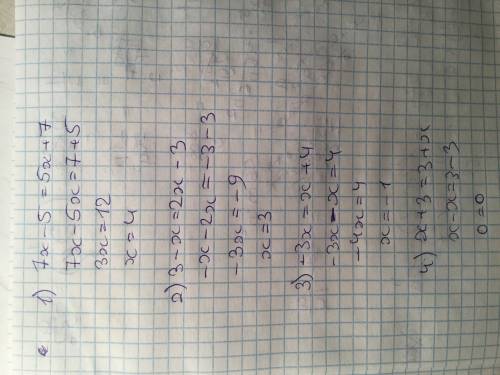 1) 7x-5=5x+7
7x-5x=7+5
3x=12
x=4
2) 3-x=2x-3
-x-2x=-3-3
-3x=-9
x=3
3) -3x=x+4
-3x-x=4
-4x=4
x=-1
4) x+3=3+x
x-x=3-3
0=0